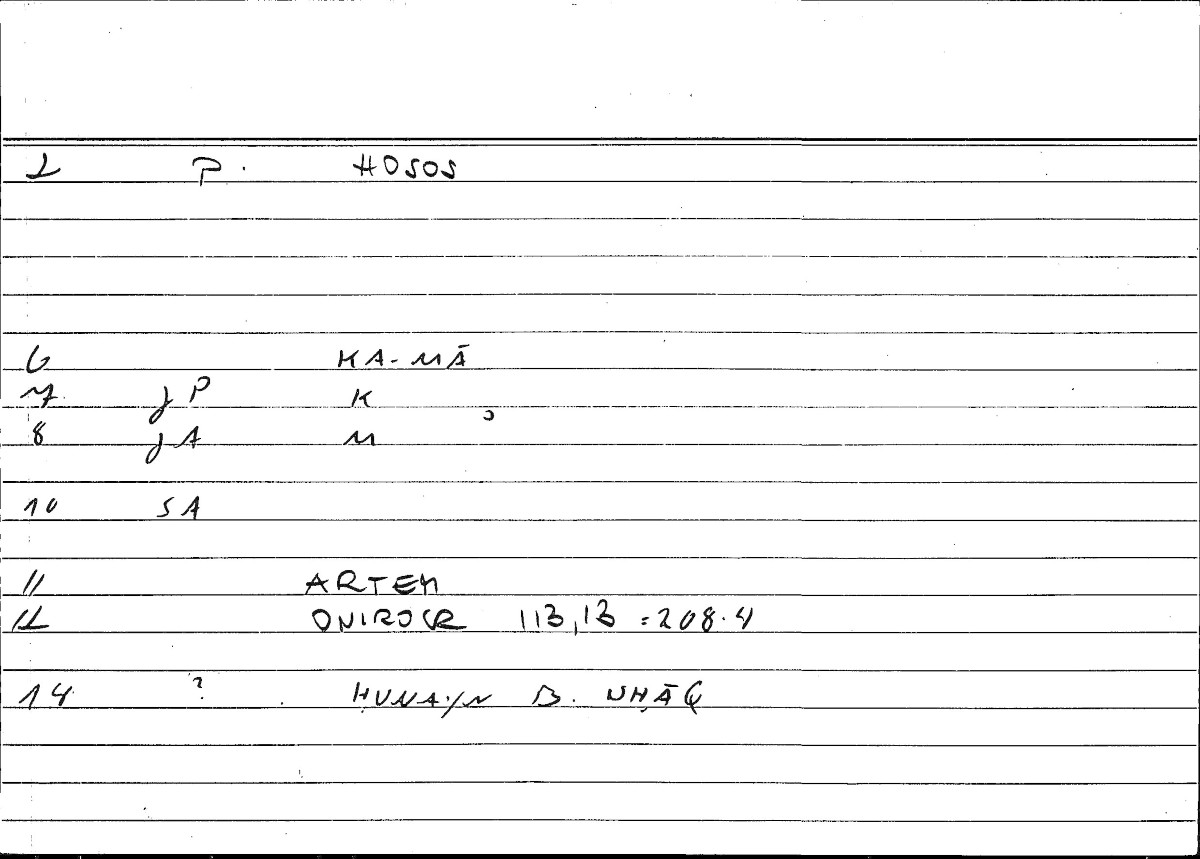 2 P. HOSOS
6 KA-MĀ
7 jP K
8 jA M
10 SA
11 ARTEM
12 ONIROCR 113,13 = 208.4
14 ? ḤUNAYN B. ISḤĀQ